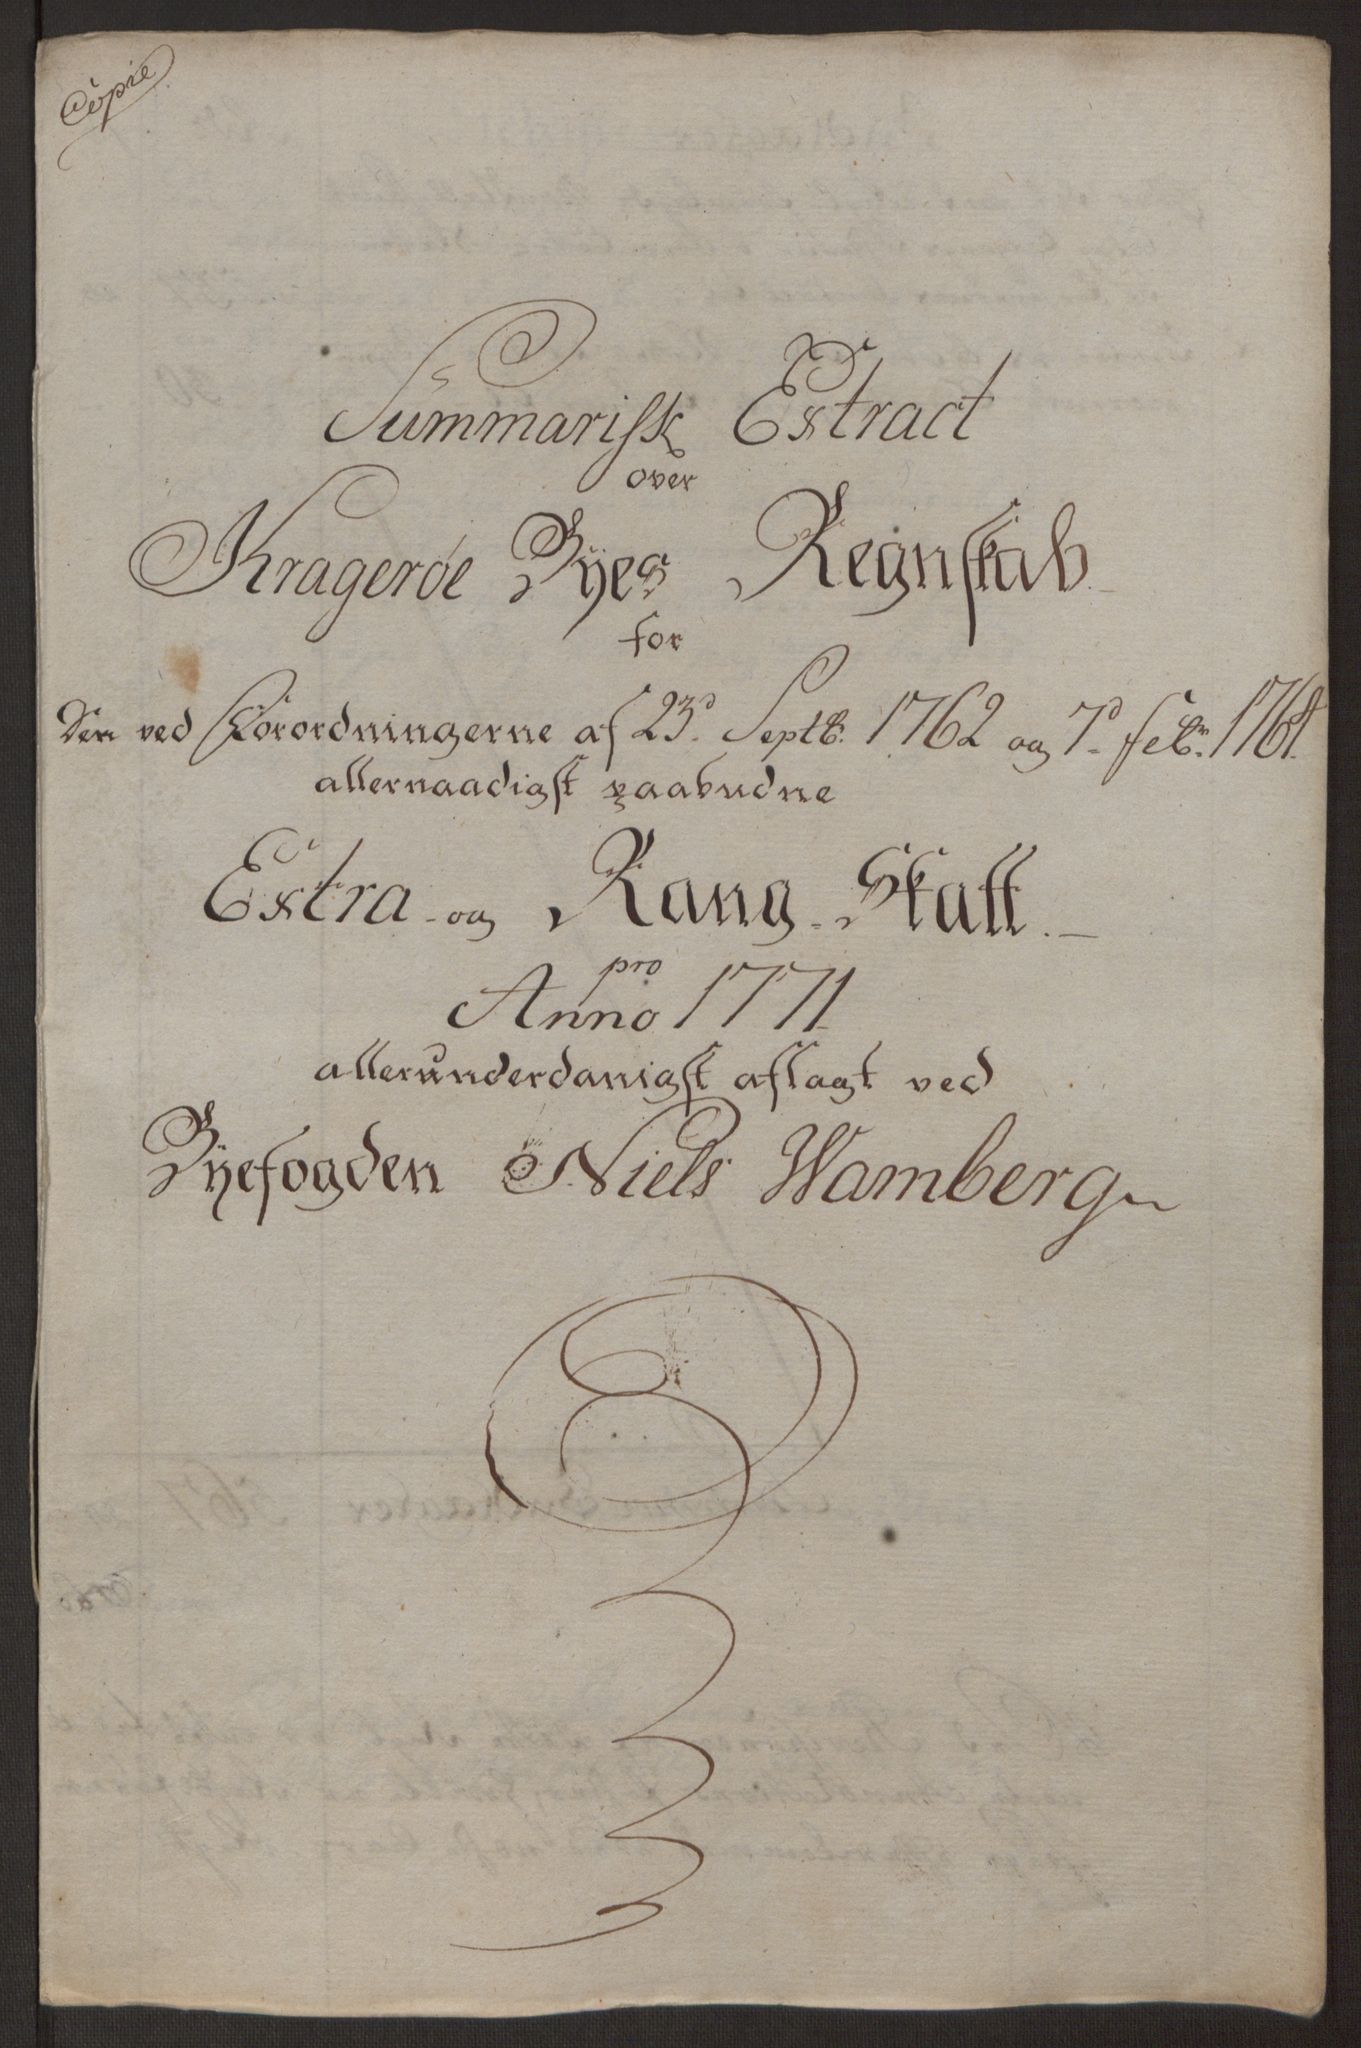 Copie
Summarisk Extract
over
Kragerøe Byes Regnskab
for
Den ved Forordningerne af 23d Septb. 1762 og 7d Febr. 1764
allernaadigst paabudne
Extra- og Rang-Skatt.
pro
Anno 1771
allerunderdanigst aflagt ved
Byefogden Niels Wamberg